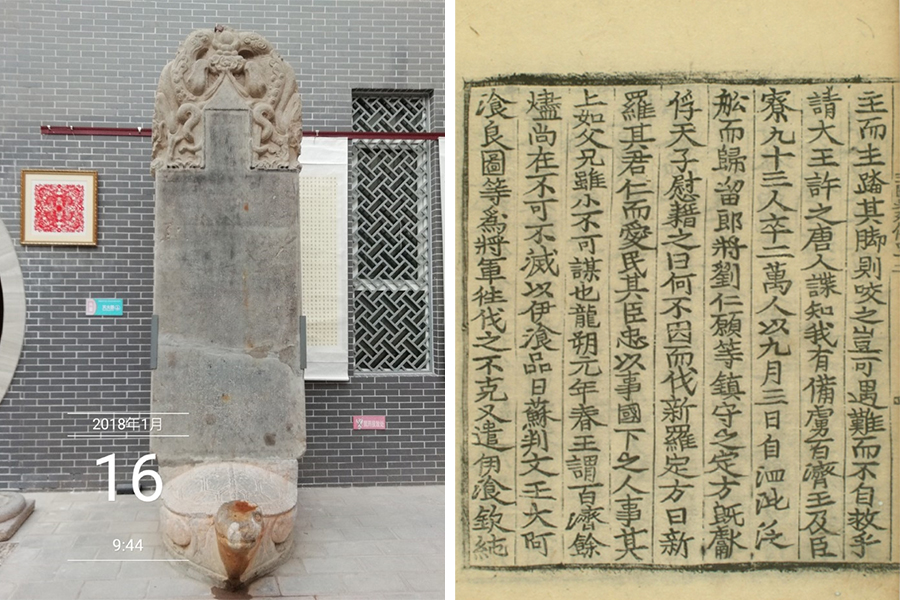 2018年1月
16
9:44
主而主踏其脚則咬之豈可遇難而不自救乎
請大王許之唐人諜知我有備虜百濟王及臣
寮九十三人卒二萬人以九月三日自泗沘泛
舩而歸留郎將劉仁願等鎮守之定方旣獻
俘天子慰藉之曰何不因而伐新羅定方曰新
羅其君仁而愛民其臣忠以事國下之人事其
上如父兄雖小不可謀也龍朔元年春王謂百濟餘
燼尚在不可不滅以伊湌品日蘇判文王大阿
湌良圖等爲將軍徃伐之不克又遣伊湌欽純